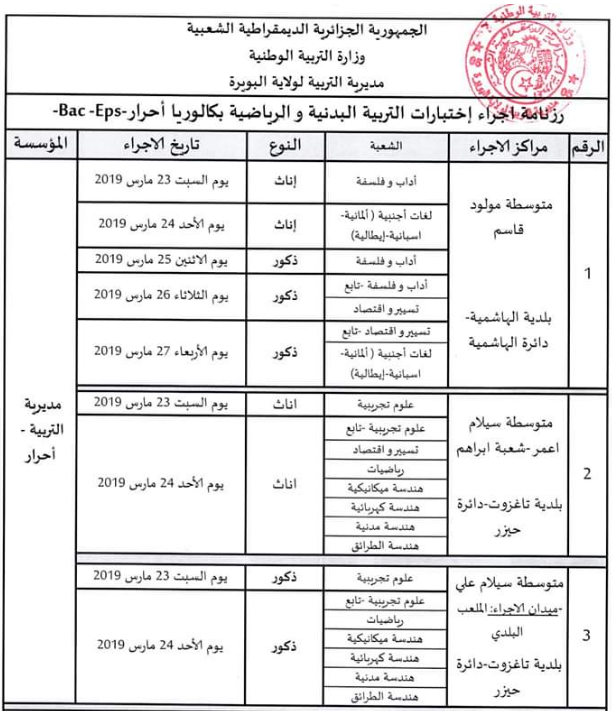 الجمهورية الجزائرية الديمقراطية الشعبية
وزارة التربية الوطنية
مديرية التربية لولاية البويرة
رزنامة اجراء إختبارات التربية البدنية و الرياضية بكالوريا أحرار-Bac -Eps-
الرقم مراكز الاجراء الشعبة النوع تاريخ الاجراء المؤسسة
1
متوسطة مولود
قاسم
بلدية الهاشمية-
دائرة الهاشمية
أداب و فلسفة إناث يوم السبت 23 مارس 2019
لغات أجنبية ( ألمانية-
اسبانية-إيطالية) إناث يوم الأحد 24 مارس 2019
أداب و فلسفة ذكور يوم الاثنين 25 مارس 2019
أداب و فلسفة -تابع
تسيير و اقتصاد ذكور يوم الثلاثاء 26 مارس 2019
تسيير و اقتصاد -تابع
لغات أجنبية ( ألمانية-
اسبانية-إيطالية) ذكور يوم الأربعاء 27 مارس 2019
مديرية
التربية -
أحرار
2
متوسطة سيلام
اعمر -شعبة ابراهم
بلدية تاغزوت-دائرة
حيزر
علوم تجريبية اناث يوم السبت 23 مارس 2019
علوم تجريبية -تابع
تسيير و اقتصاد
رياضيات
هندسة ميكانيكية
هندسة كهربائية
هندسة مدنية
هندسة الطرائق
اناث يوم الأحد 24 مارس 2019
3
متوسطة سيلام علي
-ميدان الاجراء: الملعب
البلدي
بلدية تاغزوت-دائرة
حيزر
علوم تجريبية ذكور يوم السبت 23 مارس 2019
علوم تجريبية -تابع
رياضيات
هندسة ميكانيكية
هندسة كهربائية
هندسة مدنية
هندسة الطرائق
ذكور يوم الأحد 24 مارس 2019